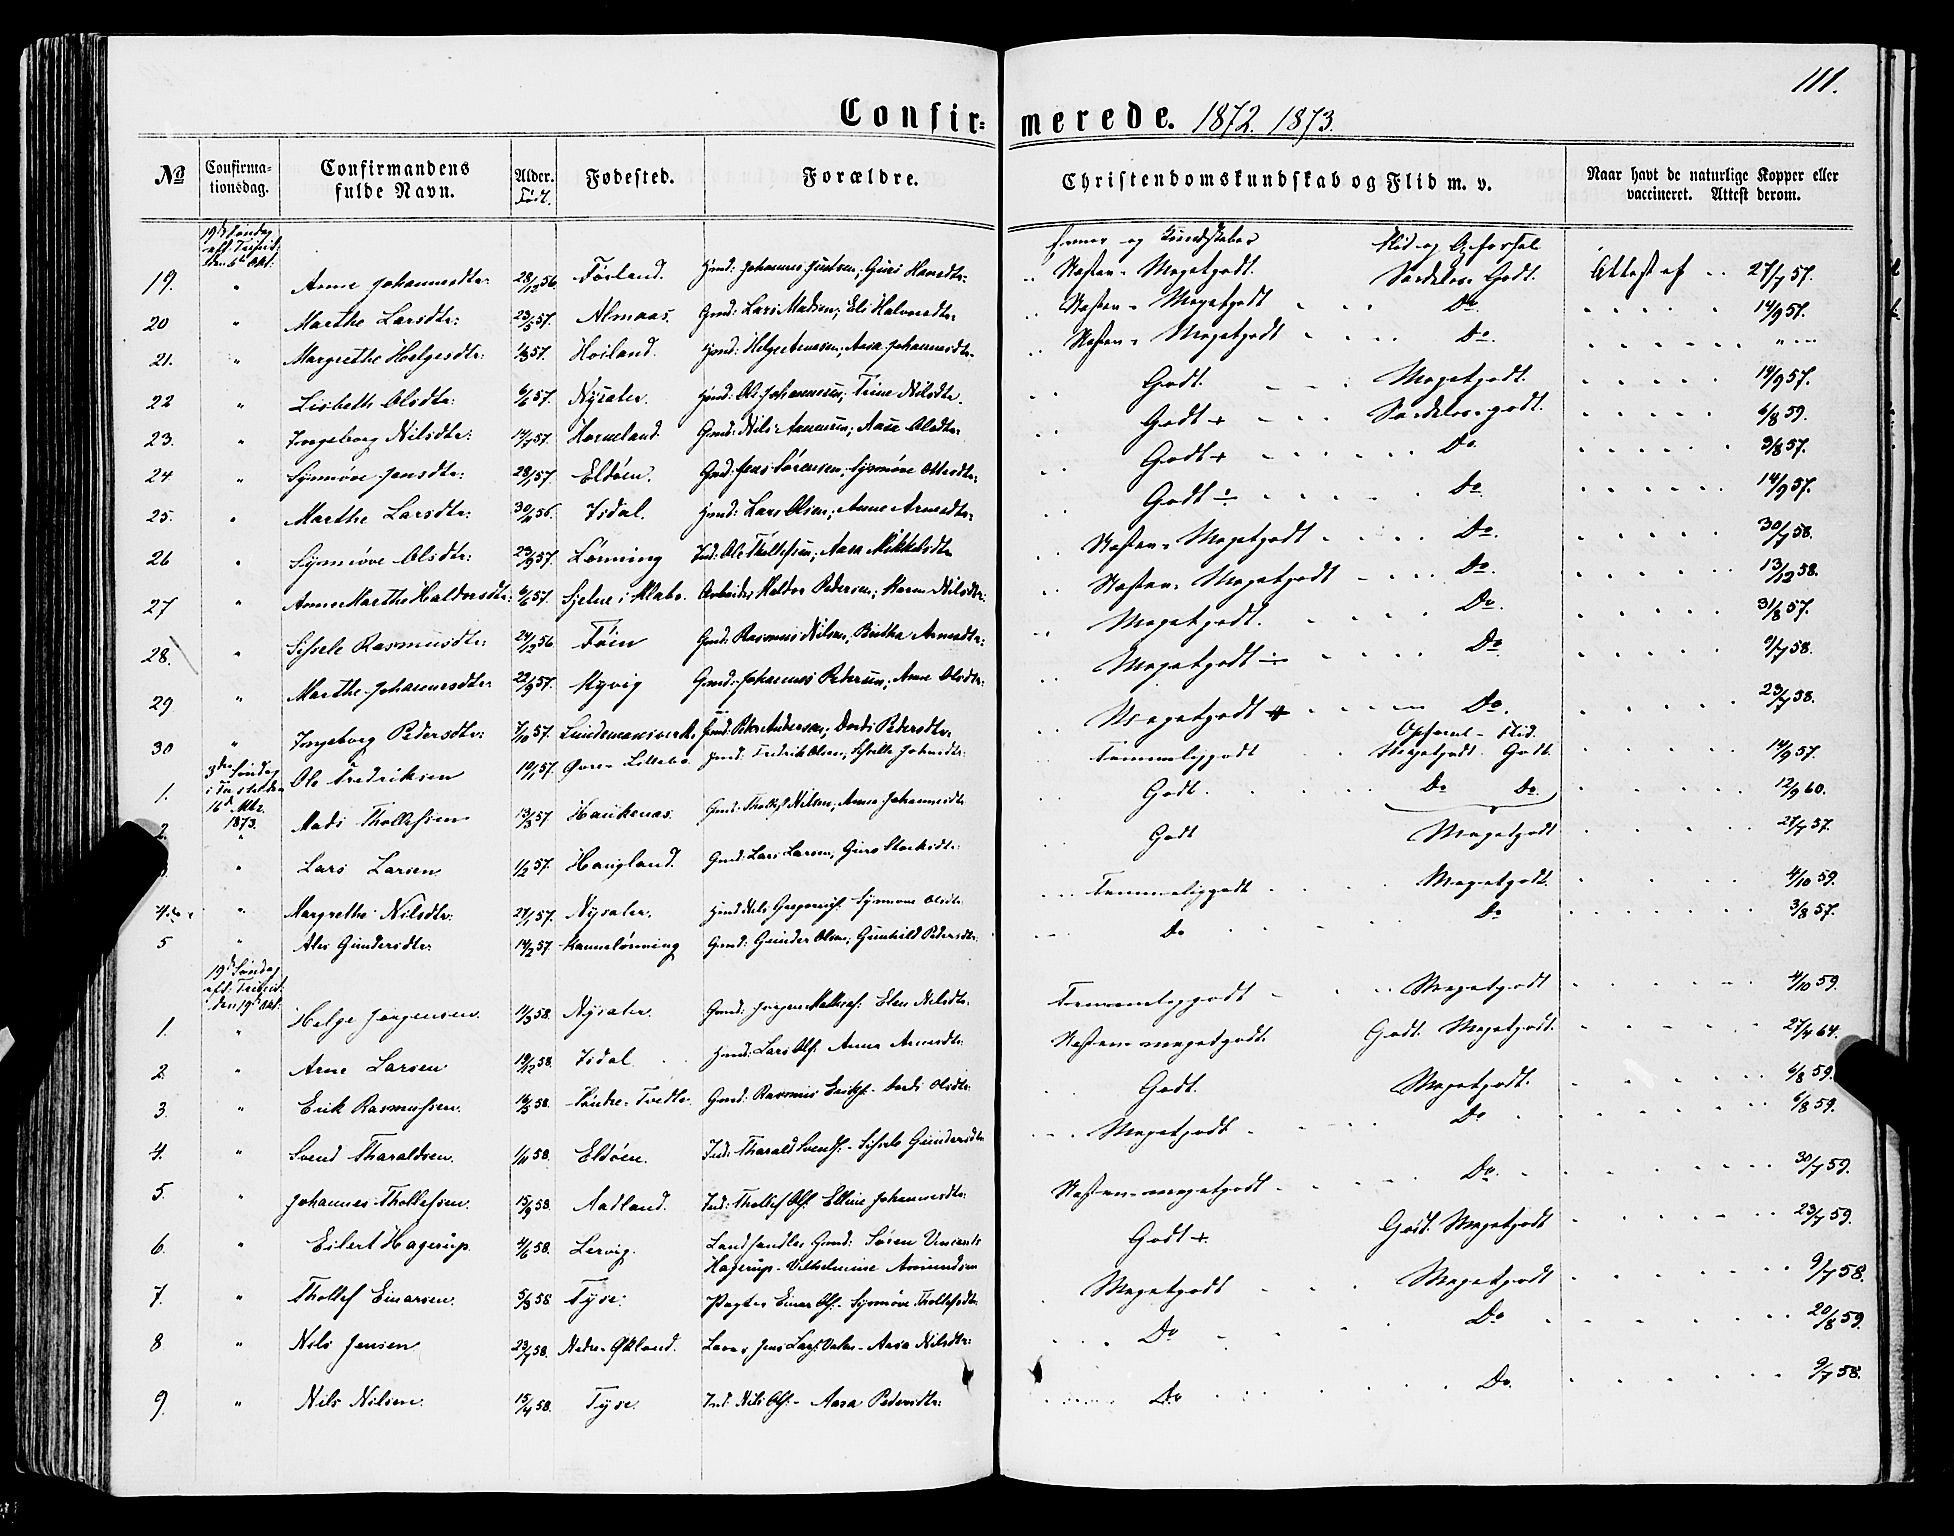 111.
Confirmerede. 1872. 1873.
No Confirmationsdag. Confirmandens fulde Navn. Alder. Født. Fødested. Forældre. Christendomskundskab og Flid m. v. Naar havt de naturlige Kopper eller vaccineret. Attest derom.
19d Søndag eft. Trinit: den 6te Okt: Evner og Kundskaber Flid og Opførsel
19. " Anne Johannesdtr: 28/12 56. Førland. Gmd: Johannes ; Guri Næsten Meget godt. Særdeles Godt. Attest af 27/7 57.
20 " Marthe Larsdtr: 23/5 57. Almaas. Gmd: Lars Madsen; Eli Halvorsdtr Næsten Meget godt Do 14/9 57.
21. " Margrethe Helgesdtr: 57. Hoiland. Gmd: Helge ; Aasa Johannesdtr. Næsten Meget godt Do " "
22 " Lisbeth Olsdtr: 57. Nysæter. Gmd: Ole Johannessen; Trine Nilsdtr. Godt. Meget godt. 14/9 57.
23. " Ingeborg Nilsdtr: 57. Horneland. Gmd: Nils ; Aase Olsdtr. Godt + Særdeles godt. 6/8 59.
24 " Synnøve Jensdtr: 28/1 57. Eldøen. Gmd: Jens Sørensen; Synnøve Ottesdtr Godt + Do 3/8 57.
25. " Marthe Larsdtr: 56. Isdal. Gmd: Lars Olsen; Anne Arnesdtr. Godt ÷ Do 14/9 57.
26 " Synnøve Olsdtr: 57. Lønning Ind: Ole Thollefsen; Aasa Mikkelsdtr Næsten Meget godt Do 30/7 58.
27 " Anne Marthe Haldorsdtr: 6/6 57. Arbeider Haldor Pedersen; Karen Nilsdtr. Næsten Meget godt Do 13/12 58.
28. " Sissele Rasmusdtr: 56 Føien Gmd: Rasmus Nilsen; Birtha Arnesdtr: Meget godt. Do 31/8 57.
29 " Marthe Johannesdtr 57. Kyvig Gmd: Johannes Pedersen; Anne Olsdtr: Meget godt ÷ Do 9/7 58.
30 " Ingeborg Pedersdtr: 7/10 57. Lundemansverk. Ind: Peder Andersen; Dorthe Pedersdtr. Meget godt + Do. 23/7 58.
3die Søndag i Fasten den 16d Mts. 1873. Opførsel – Flid.
1. Ole Fredriksen 57. Øvre Litlabø Gmd: Fredrik Olsen; Sissele Johnsdtr: Temmelig godt Meget godt Godt. 14/9 57.
2. " Mads Thollefsen 13/3 57 Haukenæs. Gmd: Tholleif Nilsen; Anne Johannesdtr. Godt. Do Do 12/9 60.
" Lars Larsen 1/2 57. Haugland. Gmd: Lars Larsen; Guro Godt Meget godt 27/7 57.
4. " Margrethe Nilsdtr: 57. Nysæter. Gmd Nils Synnøve Olsdtr Temmelig godt Meget godt. 4/10 59.
5 " Ales Gundersdtr: 14/2 57 Gmd: Gunder Olsen; Gunhild Pedersdtr. Do Do 3/8 57.
19d Søndag eft. Trinit: den 19d Okt:
1. " Helge Jørgensen. 58. Nysæter. Gmd: Jørgen Elen Nilsdtr. Temmelig godt Meget godt 4/10 59.
2. " Arne Larsen 19/12 58. Isdal Gmd: Lars Ols: Anna Arnesdtr: Næsten meget godt. Godt. Meget godt. 64.
3. " Erik Rasmussen. 58. Søndre Tvedte. Gmd: Rasmus Eriks: Dordi Olsdtr. Godt. Meget godt. 6/8 59.
4. " Svend Tharaldsen. 58. Eldøen. Ind: Tharald Svends: – Sissele Gundersdtr Meget godt Do 6/8 59.
5. " Johannes Thollefsen. 15/9 58. Aadland. Ind: Tholleif Ols. Elline Johannesdtr: Næsten meget godt Do. 30/7 59.
6. " Eilert Hagerup. 4/6 58. Lervig. Landhandler Gmd: Søren Vincents Hagerup – Vilhelmine Amundsen Godt + Godt. Meget godt 23/7 59.
7. " Tholleif Einarsen. 5/3 58 Tyse. Pagter Einar Ols. – Synnøve Thollefsdtr. Meget godt Meget godt 9/7 58.
8 " Nils Jensen 23/7 58. Nedre Økland. Jens Lars: – Aasa Nilsdtr: Do Do 20/8 59.
9. " Nils Nilsen. 15/4 58. Tyse. Ind: Nils Ols. – Aasa Pedersdtr: Do Do. 9/7 58.